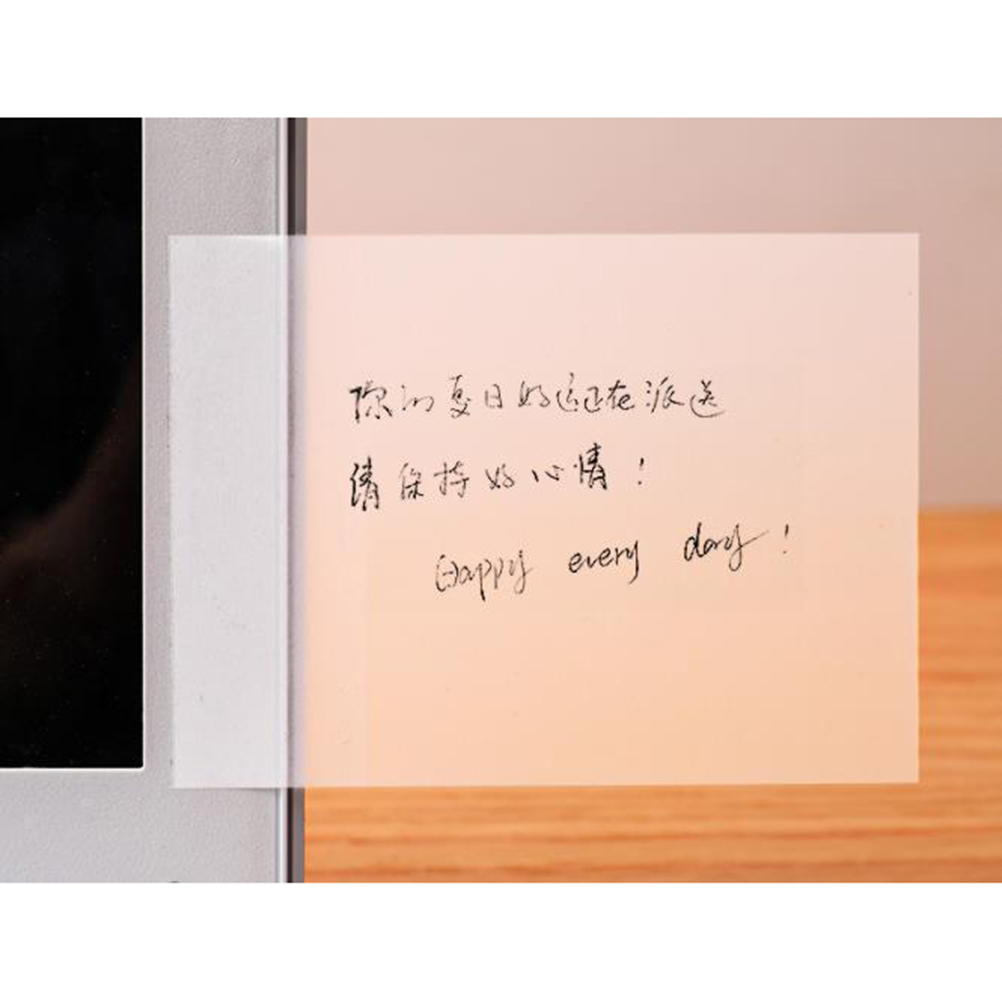 你的夏日好运正在派送
请保持好心情!
Happy every day!